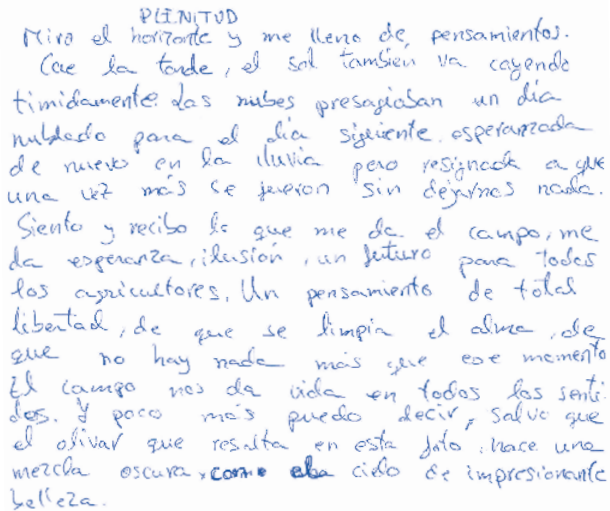 PLENITUD
Miro el horizonte y me lleno de pensamientos.
Cae la tarde, el sol también va cayendo
timidamente. Las nubes presagiaban un día
nublado para el día siguiente. esperanzada
de nuevo en la lluvia pero resignada a que
una vez más se fueron sin dejarnos nada.
Siento y recibo lo que me da el campo, me
da esperanza, ilusión, un futuro para todos
los agricultores. Un pensamiento de total
libertad, de que se limpia el alma, de
que no hay nada más que ese momento
El campo nos da vida en todos los senti-
dos. Y poco más puedo decir, salvo que
el olivar que resalta en esta foto, hace una
mezcla oscura, como cielo de impresionante
belleza.